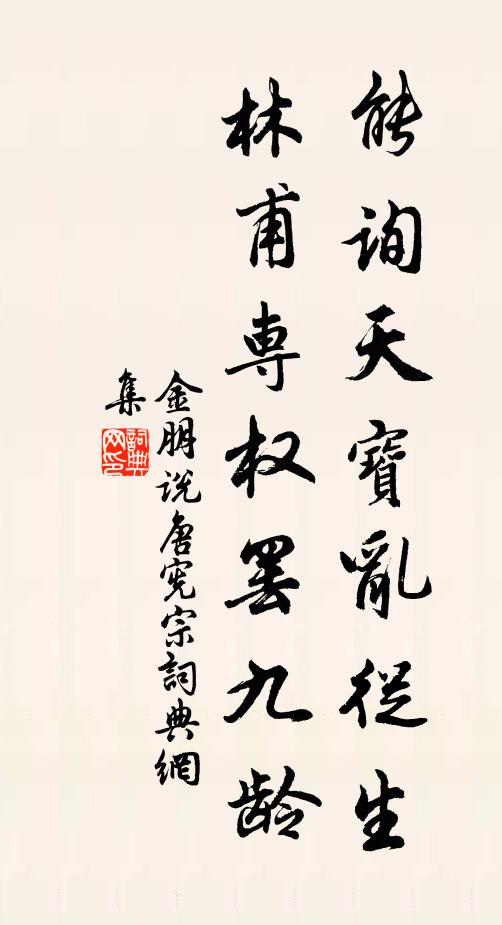 能询天寶亂從生
林甫専权罢九龄
金朋说唐宪宗詞典網
集
詞典网印